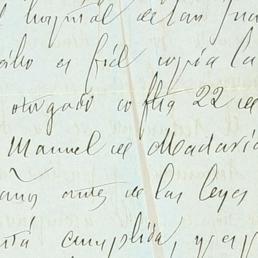 hospital de San Jua
es fiel copia la
otorgado co fha 22 de
Manuel de Madaria
años antes de las leyes
cumplida, y es